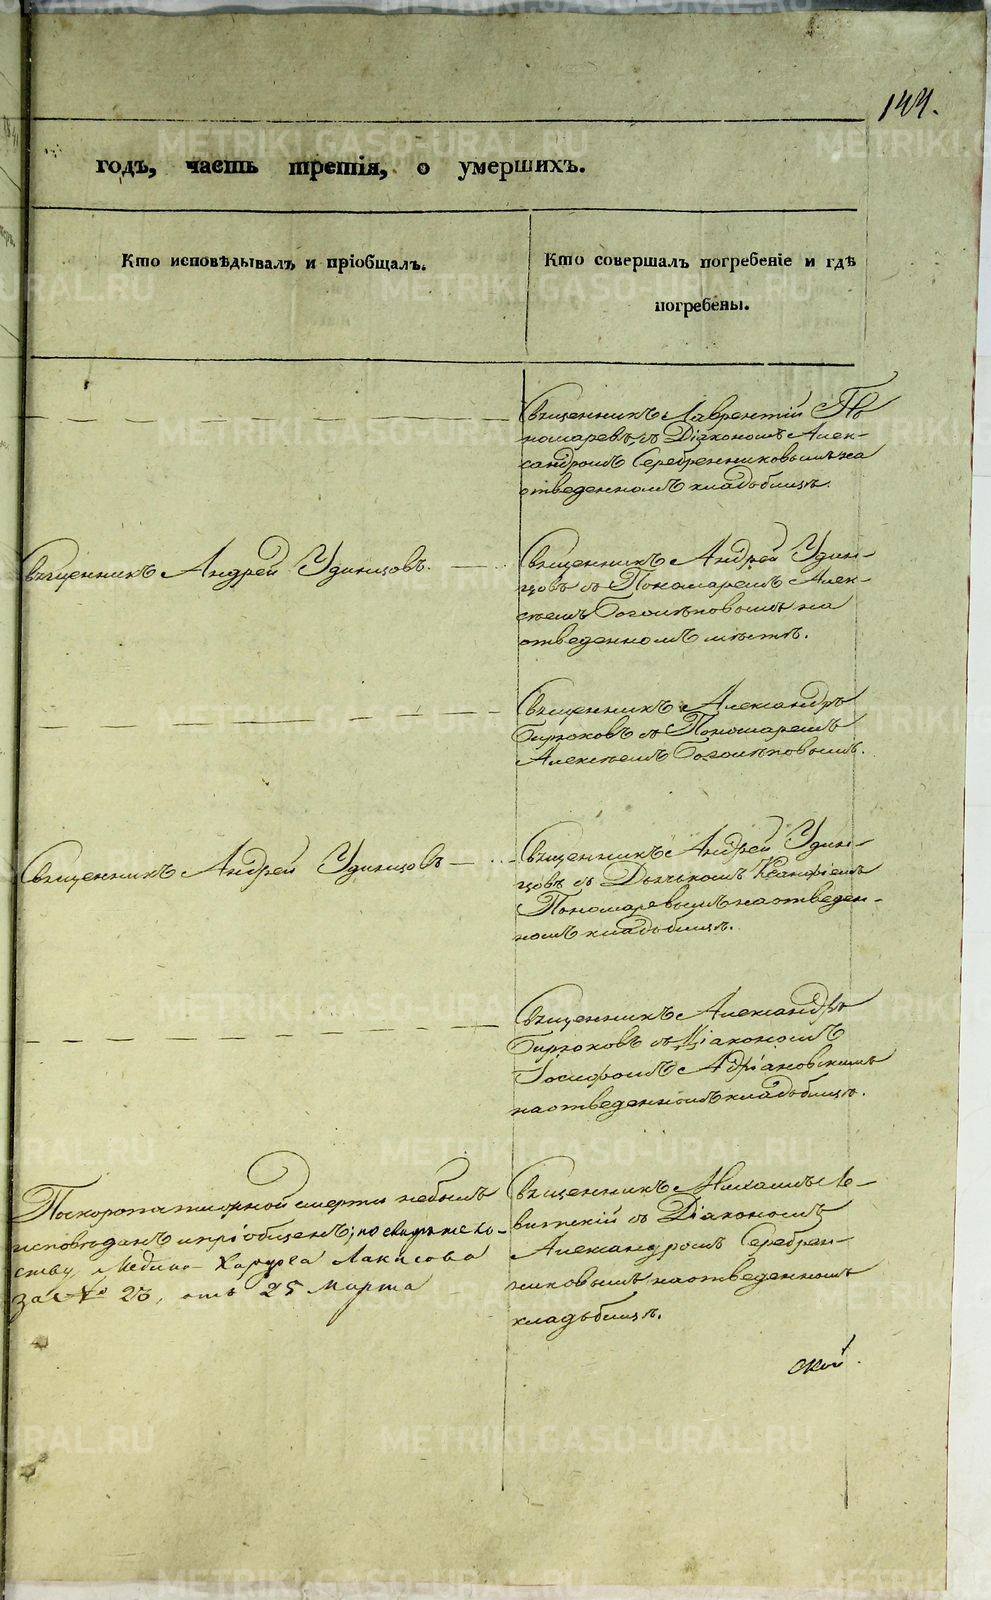 144.
годъ, часть третія, о умершихъ.
Кто исповѣдывалъ и пріобщалъ.
Кто совершалъ погребеніе и гдѣ
погребены.
Священникъ Лаврентій По
номаревъ съ Діакономъ Алек-
сандромъ Серебренниковымъ на
отведенномъ кладбищѣ.
Священникъ Андрей Удинцовъ.
Священникъ Андрей Удин-
цовъ съ Пономаремъ Алек-
сѣемъ Боголѣповымъ на
отведенномъ мѣстѣ.
Священникъ Александръ
Бирюковъ съ Пономаремъ
Алексѣемъ Боголѣповымъ.
Священникъ Андрей Удинцовъ
Священникъ Андрей Удин-
цовъ съ Дьячкомъ Ксанфіемъ
Пономаревымъ на отведен-
номъ кладбищѣ.
Священникъ Александръ
Бирюковъ съ Діакономъ
Іосифомъ Адріановскимъ
на отведенномъ кладбищѣ.
По скоропостижной смерти небылъ
исповѣданъ и пріобщенъ; по свидѣтель-
ству Медико-Хирурга
за № 23, отъ 25 Марта
Священникъ Михаилъ Ле-
витскій съ Діакономъ
Александромъ Серебрен-
никовымъ на отведенномъ
кладбищѣ.
ской
METRIKI.GASO-URAL.RU